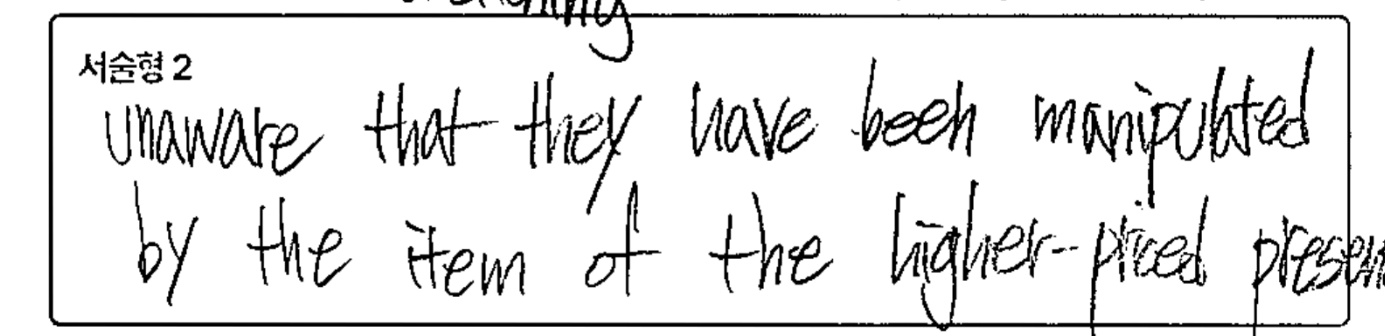 서술형 2
unaware that they have been manipulated
by the item of the higher-priced